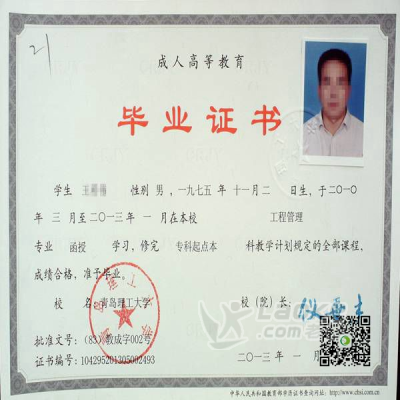 21
成人高等教育
毕业证书
学生 性别 男，一九七五年 十一月 二 日生，于二〇一〇
年 三 月至二〇一三年 一 月在本校 工程管理
专业 函授 学习，修完 专科起点本 科教学计划规定的全部课程，
成绩合格，准予毕业。
校 名：青岛理工大学 校（院）长：
批准文号：（83）教成字002号
证书编号：104295201305002493
二〇一三年 一 月
中华人民共和国教育部学历证书查询网址：http://www.chsi.com.cn